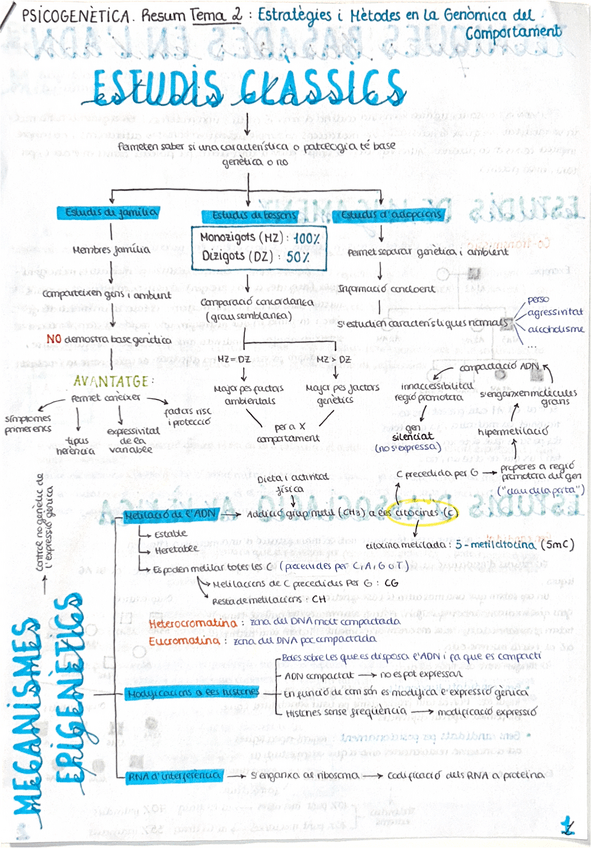 PSICOGENÈTICA. Resum Tema 2 : Estratègies i Mètodes en la Genòmica del
Comportament
ESTUDIS CLÀSSICS
estudis clàssics
Permeten saber si una característica o patologia té base
genètica o no
Estudis de família
Estudis de bessons
Estudis d'adopcions
Membres família
Comparteixen gens i ambient
NO demostra base genètica
AVANTATGE:
Permet conèixer
símptomes
primerencs
tipus
herència
expressivitat
de la
variable
factors risc
i protecció
Monozigots (MZ) : 100%
Dizigots (DZ) : 50%
Comparació concordança
(grau semblança)
MZ = DZ
MZ > DZ
Major pes factors
ambientals
Major pes factors
genètics
per a X
comportament
Permet separar genètica i ambient
Informació concloent
S'estudien característiques normals
perso
agressivitat
alcoholisme
...
compactació ADN
inaccessibilitat
regió promotora
s'enganxen molècules
grans
gen
silenciat
(no s'expressa)
hipermetilació
C precedida per G
properes a regió
promotora del gen
("clau de la porta")
Dieta i activitat
física
Control no genètic de
l'expressió gènica
MECANISMES
EPIGENÈTICS
Metilació de l'ADN
Addició grup metil (CH3) a les citocines (C)
citocina metilada : 5-metilcitocina (5mC)
Estable
Heretable
Es poden metilar totes les C (precedides per C, A, G o T)
Metilacions de C precedides per G : CG
Resta de metilacions : CH
Heterocromatina : zona del DNA molt compactada
Eucromatina : zona del DNA poc compactada
Modificacions a les histones
Boles sobre les que es disposa l'ADN i fa que es compacti
ADN compactat → no es pot expressar
En funció de com són es modifica l'expressió gènica
Histones sense freqüència → modificació expressió
RNA d'interferència → S'enganxa al ribosoma → Codificació dels RNA a proteïna
1